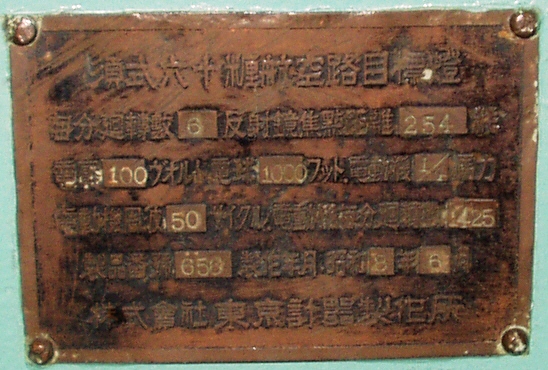 式六十糎航空路目標燈
毎分廻轉數 6 反射鏡焦點距離 254 粍
電壓 100 ヴオルト 電球 1000 ワット 電動機 1/4 馬力
電動機周波 50 サイクル 電動機毎分廻轉數 1425
製品番號 656 製作年月 昭和 8 年 6 月
株式會社東京計器製作所